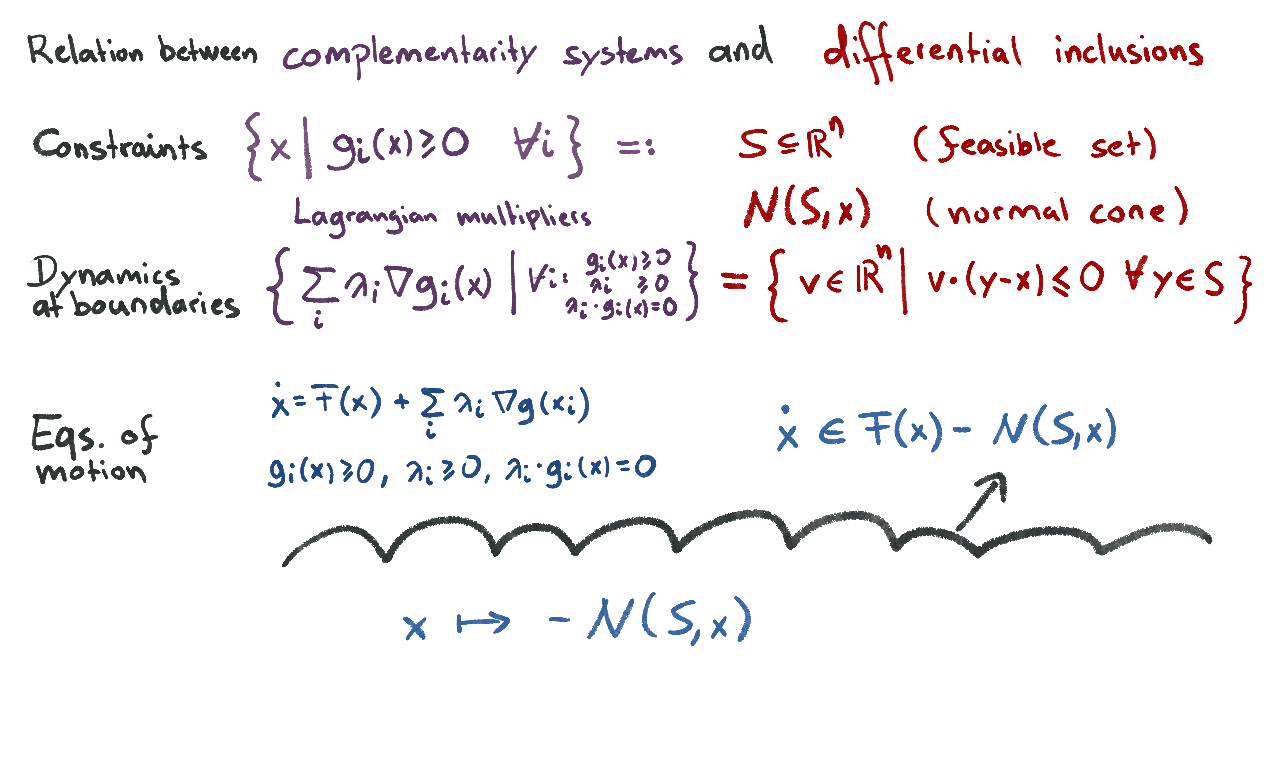 Relation between complementarity systems and differential inclusions
Constraints {x | gᵢ(x) ≥ 0 ∀i} =: S ⊆ ℝⁿ (feasible set)
Lagrangian multipliers N(S,x) (normal cone)
Dynamics at boundaries { ∑ᵢ λᵢ ∇gᵢ(x) | ∀i: gᵢ(x) ≥ 0 λᵢ ≥ 0 λᵢ·gᵢ(x)=0 } = { v ∈ ℝⁿ | v·(y-x) ≤ 0 ∀y ∈ S }
Eqs. of motion
ẋ = F(x) + ∑ᵢ λᵢ ∇g(xᵢ)
gᵢ(x) ≥ 0, λᵢ ≥ 0, λᵢ·gᵢ(x) = 0
ẋ ∈ F(x) - N(S,x)
x ↦ - N(S,x)